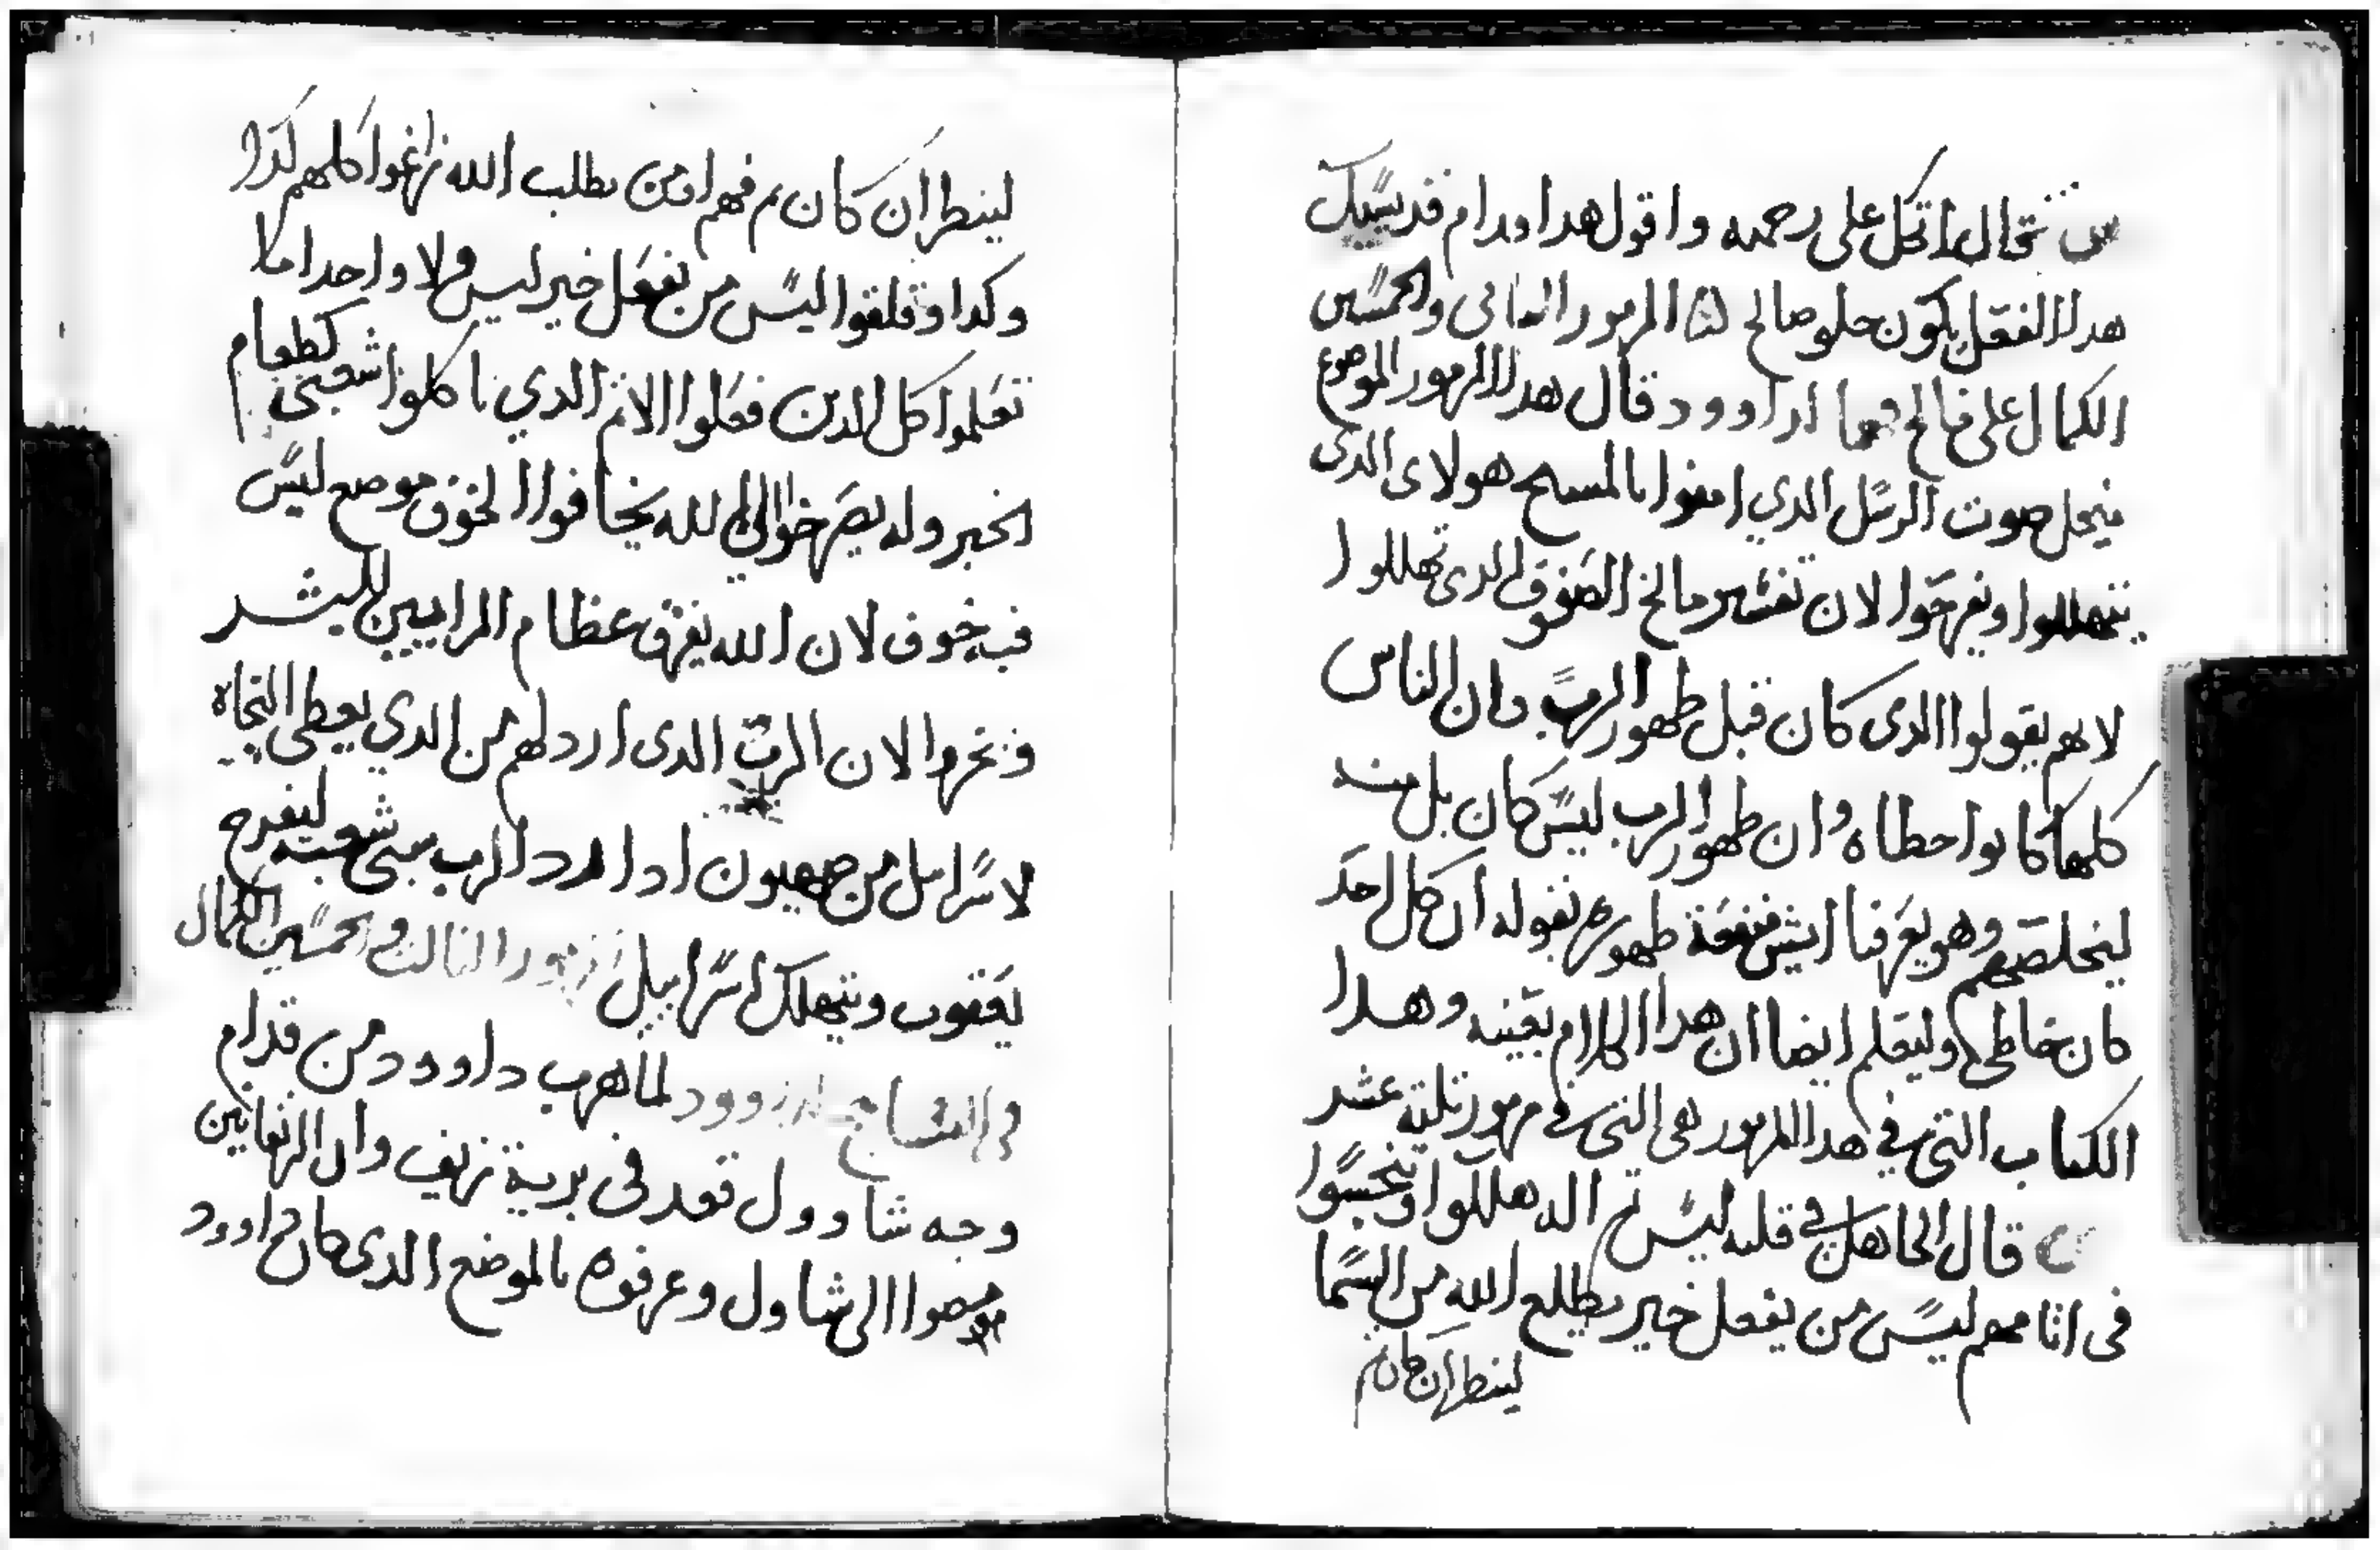 تحال اتكل على رحمه واقول هدا ودام قديسيك
هدا الفعل يكون حلو صالح لنا المزمور التانى والخمسين
الكمال على ... داوود قال هدا المزمور الموضوع
فيحل صوت الرسل الدي امنوا بالمسيح هولاى الدى
يتهللوا ويفرحوا لان تفسير مالخ الصفوف الدى تهللوا
لاهم يقولوا الدى كان قبل ظهور الرب وان الناس
كلها كانوا خطاه وان ظهور الرب ليس كان بل منه
ليخلصهم وهو يعرفنا ايش منفعة ظهوره بقوله ان كل احد
كان خاطى وليعلم ايضا ان هدا الكلام بعينه وهدا
الكتاب التى في هدا المزمور هى التى في مزمور تلتة عشر
قال الجاهل في قلبه ليس تم اله هللوا وتنجسوا
فى اثامهم ليس من يفعل خير يطلع الله من السما
لينظر ان كان تم
لينظر ان كان تم فهم اومن يطلب الله زاغوا كلهم كدا
وكدا وقلقوا ليس من يفعل خير ليس ولا واحد اما
تعلموا كل الدين فعلوا الاثم الدي ياكلوا شعبى كطعام
الخبز وله يصرخوا الى الله يخافوا الخوف موضع ليس
فيه خوف لان الله يفرق عظام المرايين للبشر
وتخزوا لان الرب الدى اردلهم من الدي يعطى النجاه
لاسراييل من صهيون ادا رد الرب سبى شعبه ليفرح
يعقوب ويتهلل اسراييل المزمور التالت والخمسين الكمال
في التسابيح لداوود لما هرب داوود من قدام
وجه شاوول قعد فى برية زيف وان الزيفايين
موضوا الى شاول وعرفوه بالموضع الدى كان داوود